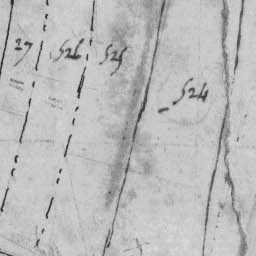 27 526 525
524